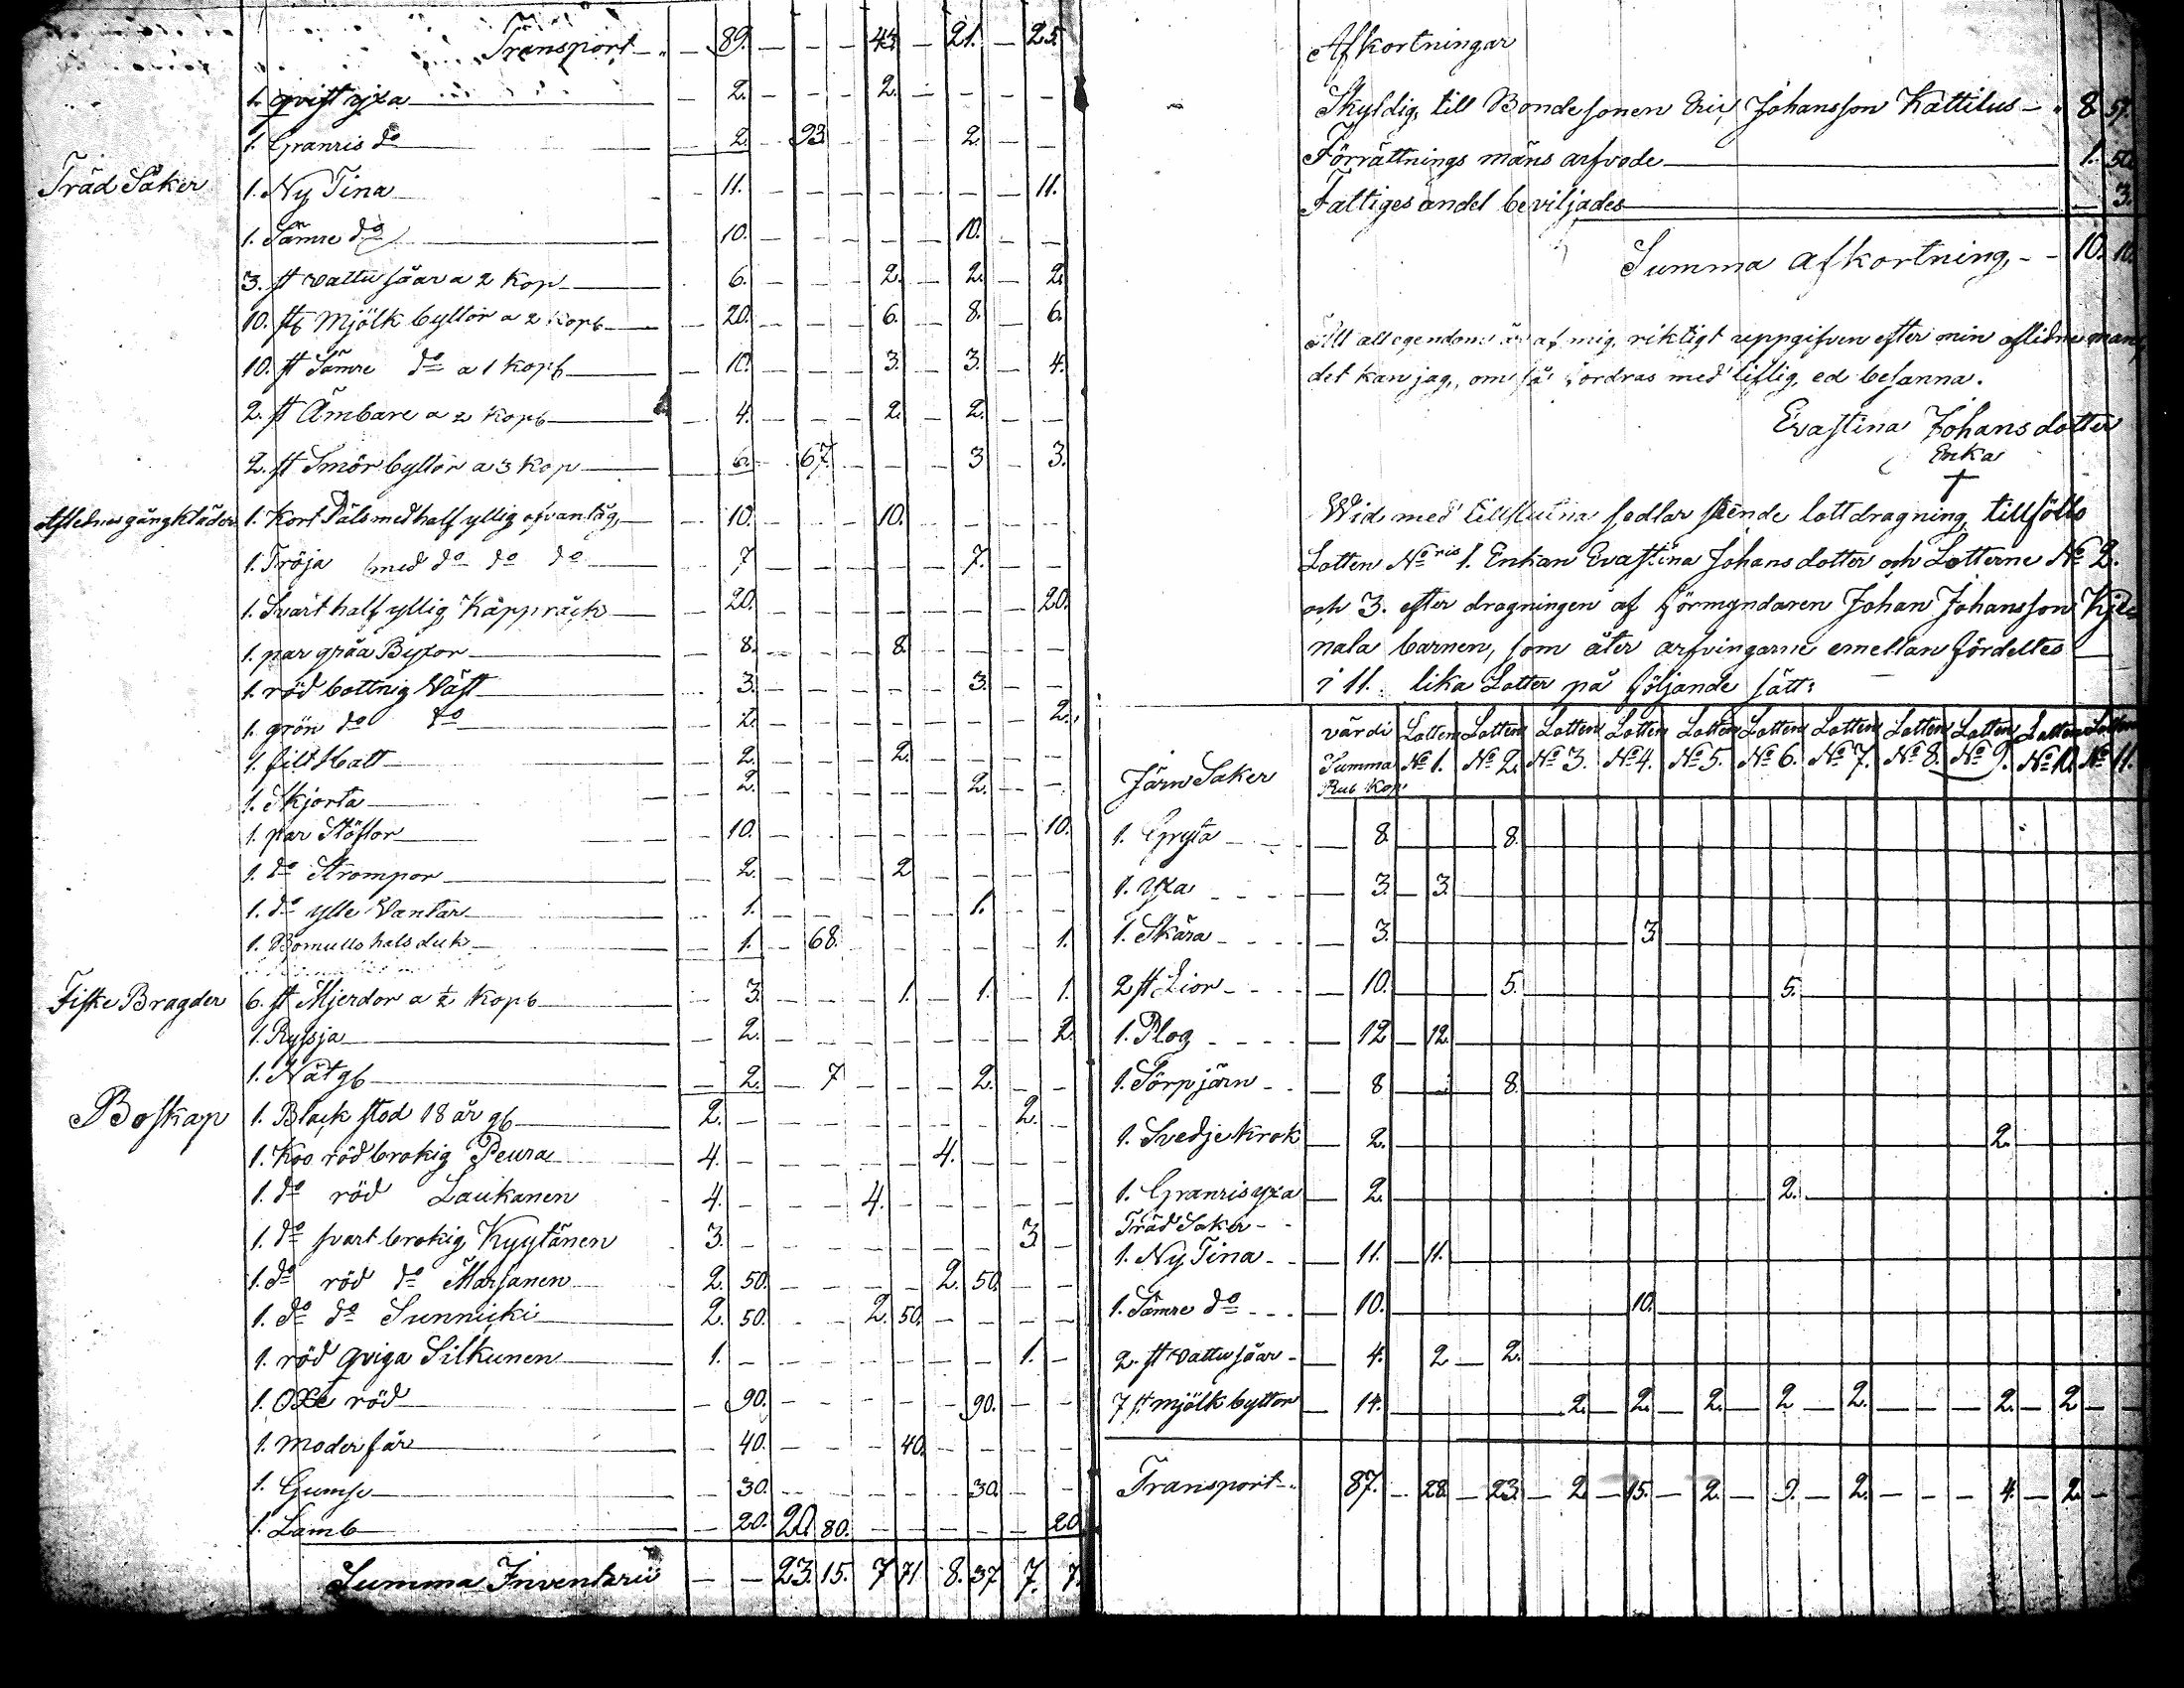 Transport — 89. — — — 43. — 21. — 25.
1. qvist yxa — 2. — — — 2. — — — —
1. Granris do — 2. — 93. — — — 2. — —
Träd Saker 1. Ny Tina — 11. — — — — — — — 11.
1. Sämre do — 10. — — — — — 10. — —
3. st vattu såar a 2 Kop — 6. — — — 2. — 2. — 2.
10. st Mjölk byttor a 2 kop — 20. — — — 6. — 8. — 6.
10. st Sämre do a 1 kop — 10. — — — 3. — 3. — 4.
2. st Ämbare a 2 kop — 4. — — — 2. — 2. — —
2. st Smör byttor a 3 Kop — 6. — 67. — — — 3 — 3.
Aflednes gångkläder 1. Kort Päls med half yllig ofvantÿg — 10. — — — 10. — — — —
1. Tröja med do do do — 7 — — — — — 7. — —
1. Svart half yllig Kappråck — 20. — — — — — — — 20.
1. par gråa Byxor — 8. — — — 8. — — — —
1. röd bottnig Väst — 3. — — — — — 3. — —
1. grön do do — 2. — — — — — — — 2.
1. filt Hatt — 2. — — — 2. — — — —
1. Skjorta — 2. — — — — — 2. — —
1. par Stöflor — 10. — — — — — — — 10.
1. do Strompor — 2. — — — 2 — — — —
1. do ylle Vantar — 1. — — — — — 1. — —
1. Bomulls halsduk — 1. — 68. — — — — — 1.
Fiske Bragder 6. st Mjerdor a ½ Kop — 3. — — — 1. — 1. — 1.
1. Ryssja — 2. — — — — — — — 2.
1. Nät gb — 2. — 7 — — — 2. — —
Boskap 1. Black stod 18 år gb — 2. — — — — — — — 2. —
1. Koo röd brokig Peura — 4. — — — — — 4. — — —
1. do röd Laukanen 4. — — — 4. — — — — —
1. do svart brokig Kyytänen 3. — — — — — — — 3 —
1. do röd do Marjanen 2. 50. — — — — 2. 50. — —
1. do do Sunnicki 2. 50. — — 2. 50. — — — —
1. röd qviga Silkunen — 1. — — — — — — — 1. —
1. Oxe röd — 90. — — — — — 90. — —
1. Moder får — 40. — — — 40. — — — —
1. Gumse — 30. — — — — — 30. — —
1. Lamb — 20. 20. 80. — — — — — 20
Summa Inventarii — — 23. 15. 7 71 8. 37 7. 7.
Afkortningar
Skyldig, till Bondesonen Eric Johansson Kattilus — " 8 57.
Förrättnings mäns arfvode — 1. 50.
Fattiges andel beviljades — 3.
Summa afkortning, — 10. 10.
att all egendom är af mig riktigt uppgifven efter min aflidne man,
det kan jag, om så fordras med liflig ed besanna.
Evastina Johansdotter
Enka
†
Wid med tillslutna sedlar skende lottdragning, tillföllo
Lotten Noris 1. Enkan Evastina Johansdotter och Lotterne No 2.
och 3. efter dragningen af förmyndaren Johan Johansson
nala barnen, som åter arfvingarne emellan fördeltes
i 11. lika Lotter på följande sätt:
Järn Saker värdi Summa Rub Kop. Lotten No 1. Lotten No 2. Lotten No 3. Lotten No 4. Lotten No 5. Lotten No 6. Lotten No 7. Lotten No 8. Lotten No 9. Lotten No 10. Lotten No 11.
1. Gryta — 8. 8.
1. Yxa — 3. — 3.
1. Skära — 3. 3.
2 st Lior — 10. 5. 5.
1. Plog — 12 — 12.
1. Sörpjärn — 8 8.
1. Svedje krok — 2. 2.
1. Granris yxa — 2. 2.
Träd Saker
1. Ny Tina — 11. — 11.
1. Sämre do — 10. 10.
2. st vattu såar — 4. 2 — 2.
7 st mjölk byttor — 14. 2. — 2. — 2. — 2 — 2. — — — 2. — 2 — —
Transport — 87. — 28. — 23. — 2. — 15. — 2. — 9. — 2. — — — 4. — 2. — —